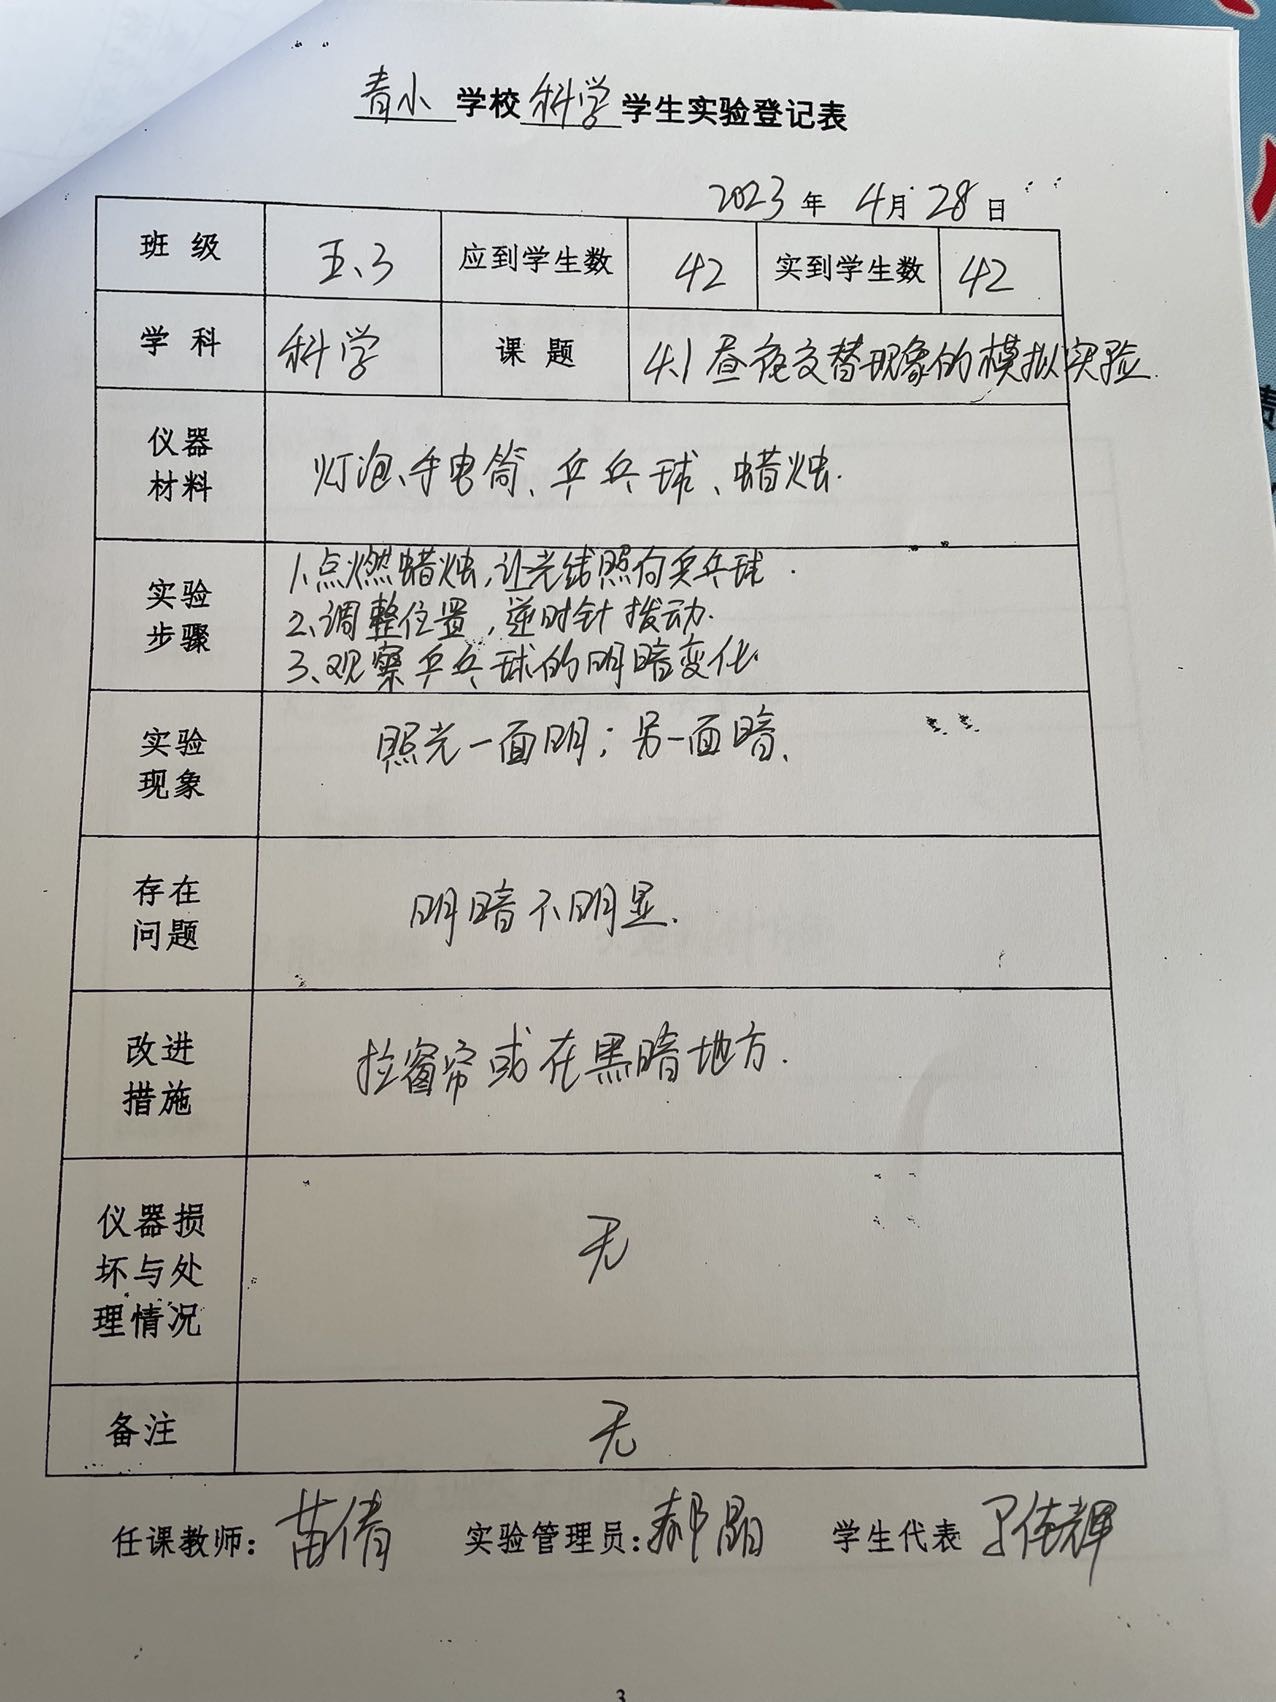 青小 学校 科学 学生实验登记表
2023 年 4月 28 日
班 级 五、3 应到学生数 42 实到学生数 42
学 科 科学 课 题 4.1 昼夜交替现象的模拟实验.
仪器
材料
灯泡、手电筒、乒乓球、蜡烛.
实验
步骤
1.点燃蜡烛,让光线照向乒乓球.
2、调整位置,逆时针拨动.
3、观察乒乓球的明暗变化.
实验
现象
照光一面明;另一面暗、
存在
问题
明暗不明显.
改进
措施
拉窗帘或在黑暗地方.
仪器损
坏与处
理情况
无
备注
无
任课教师: 苗倩 实验管理员: 郝晶 学生代表
3